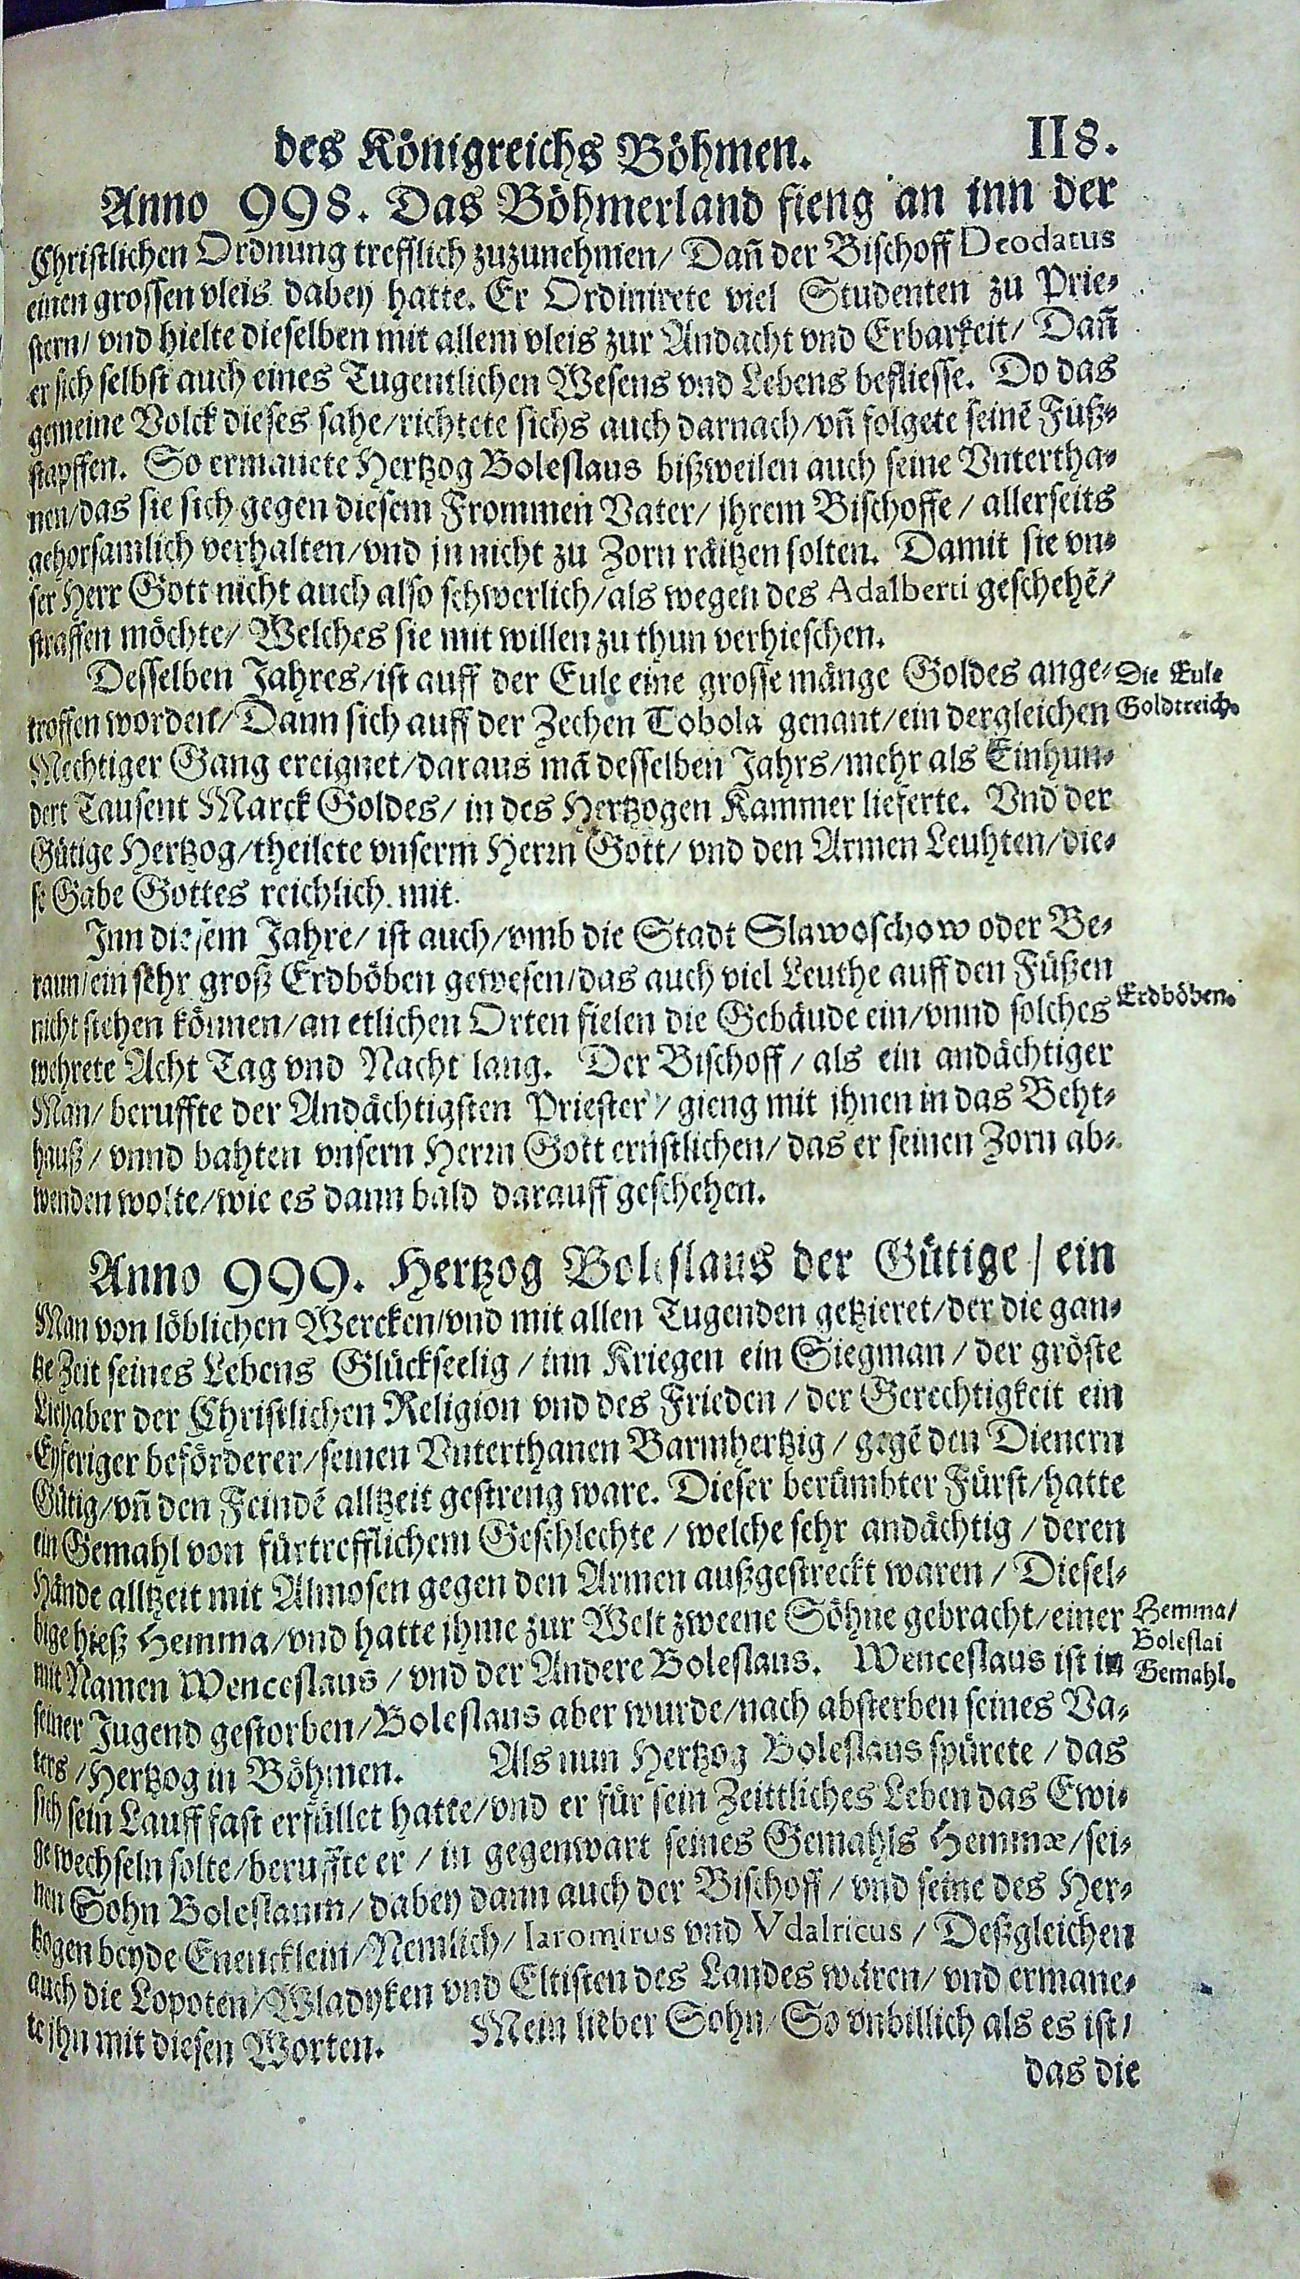 des Königreichs Böhmen. 118.
Anno 998. Das Böhmerland fieng an inn der
Christlichen Ordnung trefflich zuzunehmen/ Dañ der Bischoff Deodatus
einen grossen vleis dabey hatte. Er Ordinirete viel Studenten zu Prie-
stern/ vnd hielte dieselben mit allem vleis zur Andacht vnd Erbarkeit/ Dañ
er sich selbst auch eines Tugentlichen Wesens vnd Lebens befliesse. Do das
gemeine Volck dieses sahe/richtete sichs auch darnach/vñ folgete seinẽ Fuß-
stapffen. So ermanete Hertzog Boleslaus bißweilen auch seine Vntertha-
nen/das sie sich gegen diesem Frommen Vater/ jhrem Bischoffe/ allerseits
gehorsamlich verhalten/vnd jn nicht zu Zorn räitzen solten. Damit sie vn-
ser Herr Gott nicht auch also schwerlich/als wegen des Adalberti geschehẽ/
straffen möchte/ Welches sie mit willen zu thun verhieschen.
Desselben Jahres/ist auff der Eule eine grosse mänge Goldes ange-
Die Eule
troffen worden/ Dann sich auff der Zechen Tobola genant/ein dergleichen
Goldtreich.
Mechtiger Gang ereignet/daraus mã desselben Jahrs/mehr als Einhun-
dert Tausent Marck Goldes/ in des Hertzogen Kammer lieferte. Vnd der
Gütige Hertzog/theilete vnserm Herrn Gott/ vnd den Armen Leuhten/die-
se Gabe Gottes reichlich mit.
Inn diesem Jahre/ ist auch/vmb die Stadt Slawoschow oder Be-
raun/ein sehr groß Erdböben gewesen/das auch viel Leuthe auff den Füßen
Erdböben.
nicht stehen können/an etlichen Orten fielen die Gebäude ein/vnnd solches
wehrete Acht Tag vnd Nacht lang. Der Bischoff/ als ein andächtiger
Man/ beruffte der Andächtigsten Priester/ gieng mit jhnen in das Beht-
hauß/ vnnd bahten vnsern Herrn Gott ernstlichen/ das er seinen Zorn ab-
wenden wolte/wie es dann bald darauff geschehen.
Anno 999. Hertzog Boleslaus der Gütige/ ein
Man von löblichen Wercken/vnd mit allen Tugenden getzieret/der die gan-
tze Zeit seines Lebens Glückseelig/ inn Kriegen ein Siegman/ der gröste
Liebhaber der Christlichen Religion vnd des Frieden/ der Gerechtigkeit ein
Eyferiger beförderer/seinen Vnterthanen Barmhertzig/ gegẽ den Dienern
Gütig/vñ den Feindẽ alltzeit gestreng ware. Dieser berümbter Fürst/hatte
ein Gemahl von fürtrefflichem Geschlechte/ welche sehr andächtig/ deren
Hände alltzeit mit Almosen gegen den Armen außgestreckt waren/ Diesel-
bige hieß Hemma/vnd hatte jhme zur Welt zweene Söhne gebracht/einer
Hemma/
Boleslai
Gemahl.
mit Namen Wenceslaus/ vnd der Andere Boleslaus. Wenceslaus ist in
seiner Jugend gestorben/Boleslaus aber wurde/nach absterben seines Va-
ters/Hertzog in Böhmen. Als nun Hertzog Boleslaus spürete/ das
sich sein Lauff fast erfüllet hatte/vnd er für sein Zeittliches Leben das Ewi-
ge wechseln solte/beruffte er/ in gegenwart seines Gemahls Hemmæ/sei-
nen Sohn Boleslaum/ dabey dann auch der Bischoff/ vnd seine des Her-
tzogen beyde Enencklein/Nemlich/ Iaromirus vnd Vdalricus/ Deßgleichen
auch die Lopoten/Wladyken vnd Eltisten des Landes wären/ vnd ermane-
te jhn mit diesen Worten. Mein lieber Sohn/ So vnbillich als es ist/
das die